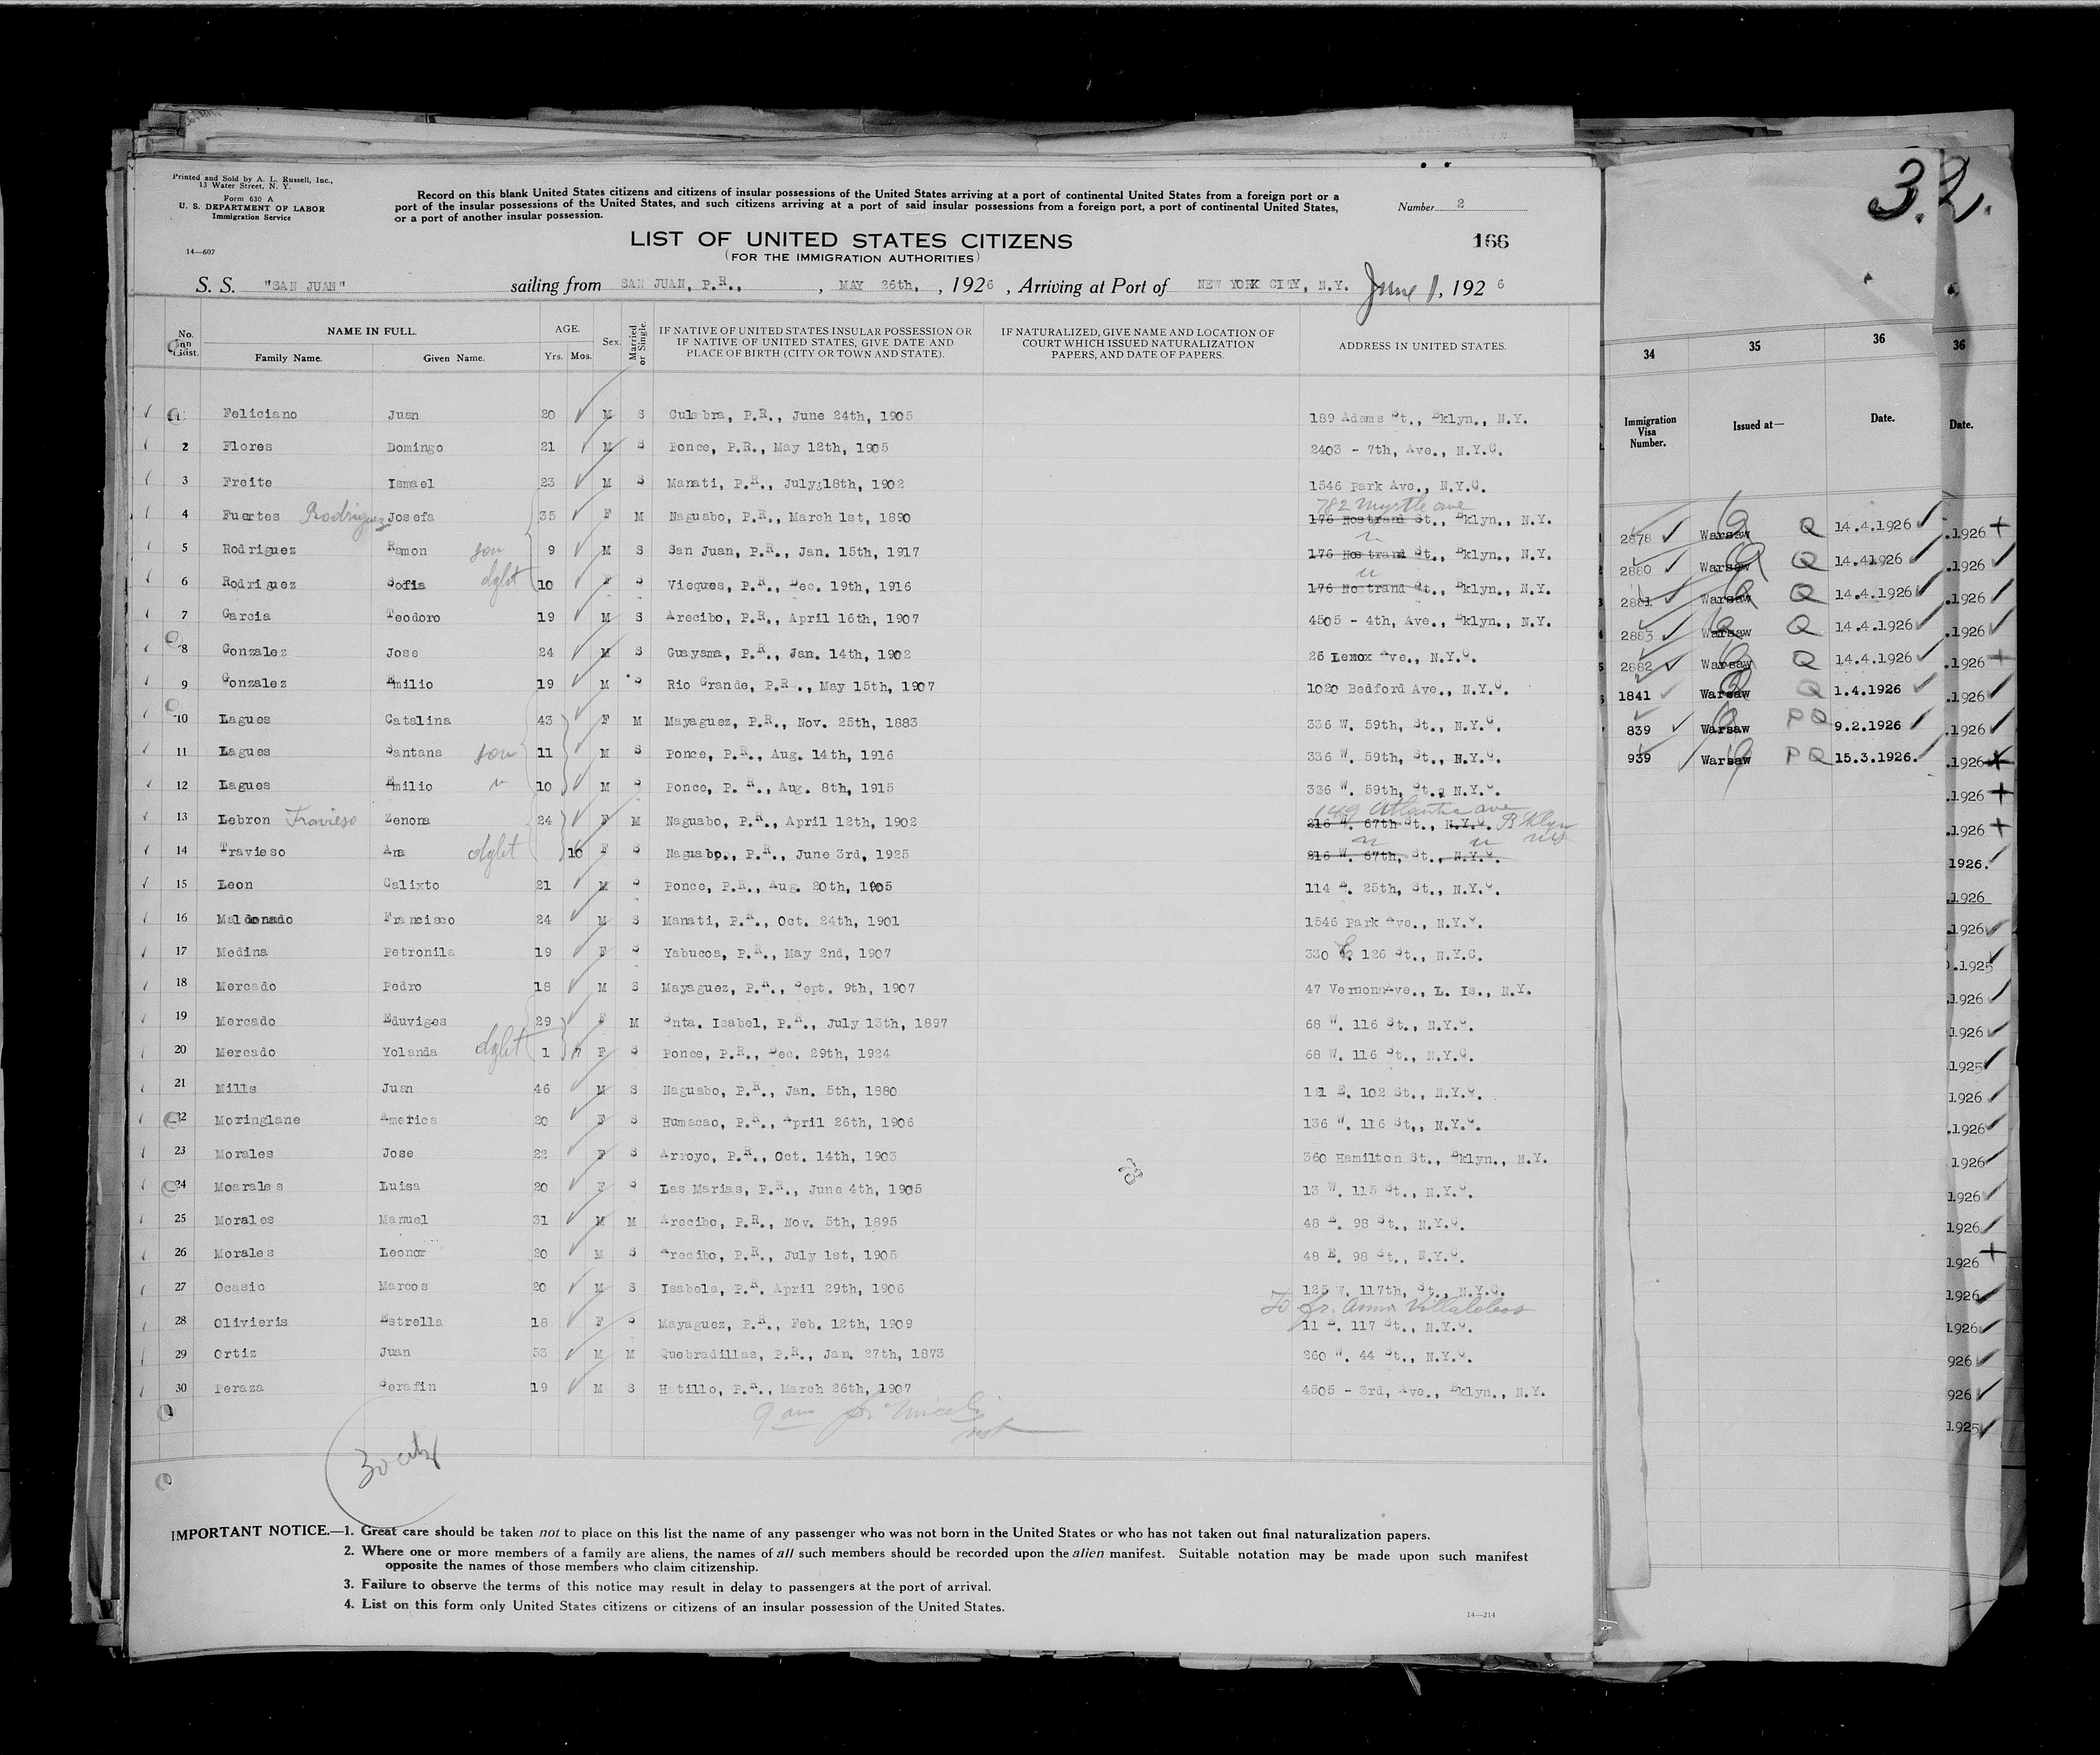 Printed and Sold by A. L. Russell, Inc.,
13 Water Street, N. Y.
Form 630 A
U. S. DEPARTMENT OF LABOR
Immigration Service
14—607
Record on this blank United States citizens and citizens of insular possessions of the United States arriving at a port of continental United States from a foreign port or a
port of the insular possessions of the United States, and such citizens arriving at a port of said insular possessions from a foreign port, a port of continental United States,
or a port of another insular possession.
Number 2
LIST OF UNITED STATES CITIZENS
(FOR THE IMMIGRATION AUTHORITIES)
166
S. S. "SAN JUAN" sailing from SAN JUAN, P.R., , MAY 26th, , 1926 , Arriving at Port of NEW YORK CITY, N.Y. June 1, 1926
No. on List. NAME IN FULL. Family Name. Given Name. AGE. Yrs. Mos. Sex. Married or Single. IF NATIVE OF UNITED STATES INSULAR POSSESSION OR IF NATIVE OF UNITED STATES, GIVE DATE AND PLACE OF BIRTH (CITY OR TOWN AND STATE). IF NATURALIZED, GIVE NAME AND LOCATION OF COURT WHICH ISSUED NATURALIZATION PAPERS, AND DATE OF PAPERS. ADDRESS IN UNITED STATES.
1 Feliciano Juan 20 M S Culebra, P.R., June 24th, 1905 189 Adams St., Bklyn., N.Y.
2 Flores Domingo 21 M S Ponce, P.R., May 12th, 1905 2403 - 7th, Ave., N.Y.C.
3 Freite Ismael 23 M S Manati, P.R., July 18th, 1902 1546 Park Ave., N.Y.C.
782 Myrtle ave
4 Fuertes Rodriguez Josefa 35 F M Naguabo, P.R., March 1st, 1890 176 Nostrand St., Bklyn., N.Y.
5 Rodriguez Ramon son 9 M S San Juan, P.R., Jan. 15th, 1917 176 Nostrand St., Bklyn., N.Y.
6 Rodriguez Sofia dght 10 F S Vieques, P.R., Dec. 19th, 1916 176 Nostrand St., Bklyn., N.Y.
7 Garcia Teodoro 19 M S Arecibo, P.R., April 16th, 1907 4505 - 4th, Ave., Bklyn., N.Y.
8 Gonzalez Jose 24 M S Guayama, P.R., Jan. 14th, 1902 26 Lenox Ave., N.Y.C.
9 Gonzalez Emilio 19 M S Rio Grande, P.R., May 15th, 1907 1020 Bedford Ave., N.Y.C.
10 Lagues Catalina 43 F M Mayaguez, P.R., Nov. 25th, 1883 336 W. 59th, St., N.Y.C.
11 Lagues Santana son 11 M S Ponce, P.R., Aug. 14th, 1916 336 W. 59th, St., N.Y.C.
12 Lagues Emilio " 10 M S Ponce, P. R., Aug. 8th, 1915 336 W. 59th, St., N.Y.C.
Atlantic ave
13 Lebron Travieso Zenona 24 F M Naguabo, P.R., April 12th, 1902 216 W. 67th St., N.Y.C. Bklyn
14 Travieso Ana dght 10 F S Naguabo., P.R., June 3rd, 1925 216 W. 67th, St., N.Y.C.
15 Leon Calixto 21 M S Ponce, P.R., Aug. 20th, 1905 114 E. 25th, St., N.Y.C.
16 Maldonado Francisco 24 M S Manati, P.R., Oct. 24th, 1901 1546 Park Ave., N.Y.C.
17 Medina Petronila 19 F S Yabucoa, P.R., May 2nd, 1907 330 E. 126 St., N.Y.C.
18 Mercado Pedro 18 M S Mayaguez, P.R., Sept. 9th, 1907 47 Vernon Ave., L. Is., N.Y.
19 Mercado Eduviges 29 F M Snta. Isabel, P.R., July 13th, 1897 68 W. 116 St., N.Y.C.
20 Mercado Yolanda dght 1 7 F S Ponce, P.R., Dec. 29th, 1924 68 W. 116 St., N.Y.C.
21 Mills Juan 46 M S Naguabo, P.R., Jan. 5th, 1880 121 E. 102 St., N.Y.C.
22 Moringlane America 20 F S Humacao, P.R., April 26th, 1906 136 W. 116 St., N.Y.C.
23 Morales Jose 22 F S Arroyo, P.R., Oct. 14th, 1903 360 Hamilton St., Bklyn., N.Y.
24 Moarales Luisa 20 F S Las Marias, P.R., June 4th, 1905 13 W. 115 St., N.Y.C.
25 Morales Manuel 31 M M Arecibo, P.R., Nov. 5th, 1895 48 E. 98 St., N.Y.C.
26 Morales Leonor 20 M S Arecibo, P.R., July 1st, 1905 48 E. 98 St., N.Y.C.
27 Ocasio Marcos 20 M S Isabela, P.R. April 29th, 1906 125 W. 117th, St., N.Y.C.
To Sr. Anna Villalobos
28 Olivieris Estrella 18 F S Mayaguez, P.R., Feb. 12th, 1909 11 E. 117 St., N.Y.C.
29 Ortiz Juan 53 M M Quebradillas, P.R., Jan. 27th, 1873 260 W. 44 St., N.Y.C.
30 Peraza Serafin 19 M S Hatillo, P.R., March 26th, 1907 4505 - 3rd, Ave., Bklyn., N.Y.
IMPORTANT NOTICE.—1. Great care should be taken not to place on this list the name of any passenger who was not born in the United States or who has not taken out final naturalization papers.
2. Where one or more members of a family are aliens, the names of all such members should be recorded upon the alien manifest. Suitable notation may be made upon such manifest
opposite the names of those members who claim citizenship.
3. Failure to observe the terms of this notice may result in delay to passengers at the port of arrival.
4. List on this form only United States citizens or citizens of an insular possession of the United States.
14—214
32.
34 35 36 36
Immigration Visa Number. Issued at— Date. Date.
2878 Warsaw Q 14.4.1926
2880 Warsaw Q 14.41926
2881 Warsaw Q 14.4.1926
2883 Warsaw Q 14.4.1926
2882 Warsaw Q 14.4.1926
1841 Warsaw Q 1.4.1926
839 Warsaw PQ 9.2.1926
939 Warsaw PQ 15.3.1926.
.1926
.1926
.1926
.1926
.1926
.1926
.1926
.1926
.1926
.1926
1926.
.1926
.1926
.1925
.1926
.1926
.1925
1926
.1926
.1926
1926
1926
1926
1926
1926
926
926
1925